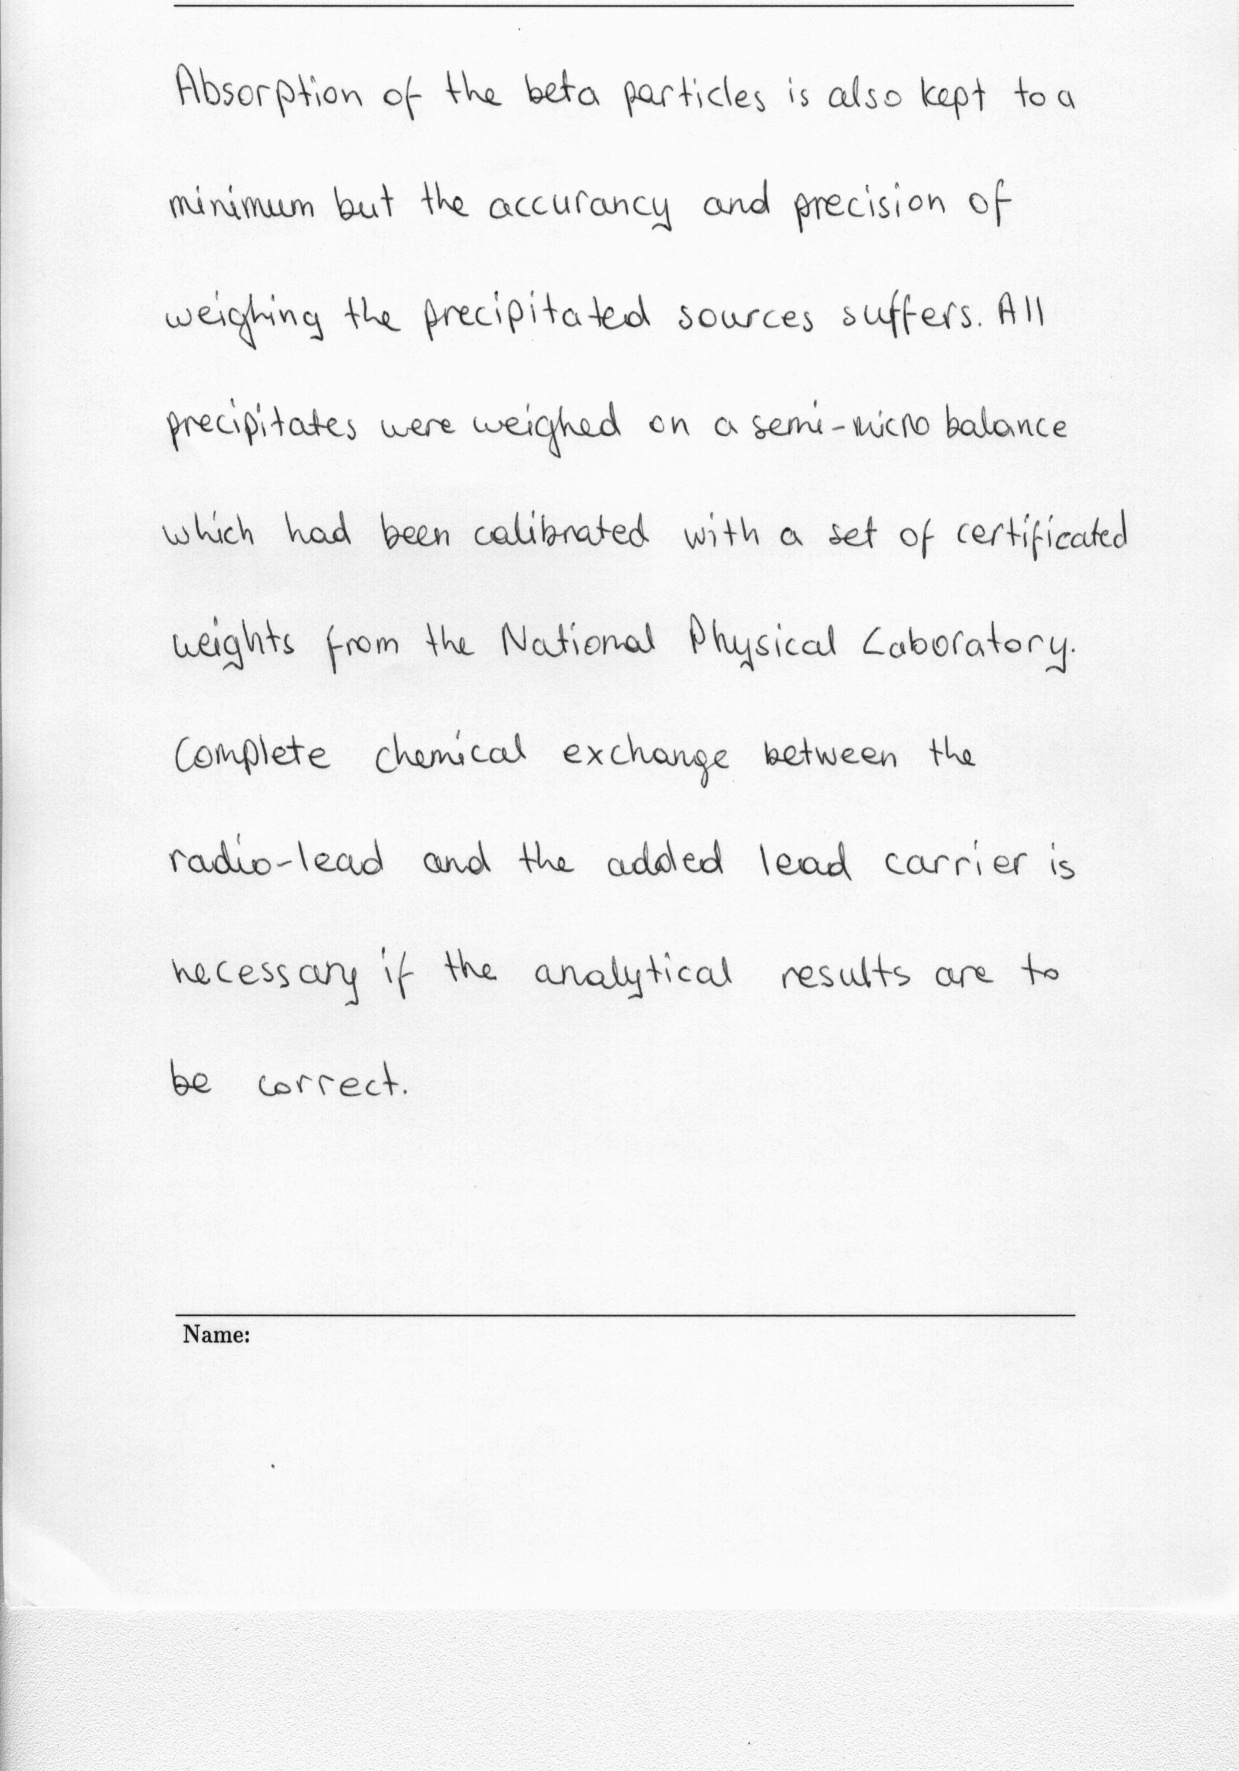 Absorption of the beta particles is also kept to a
minimum but the accurancy and precision of
weighing the precipitated sources suffers. All
precipitates were weighed on a semi-micro balance
which had been calibrated with a set of certificated
weights from the National Physical Laboratory.
Complete chemical exchange between the
radio-lead and the added lead carrier is
necessary if the analytical results are to
be correct.
Name: